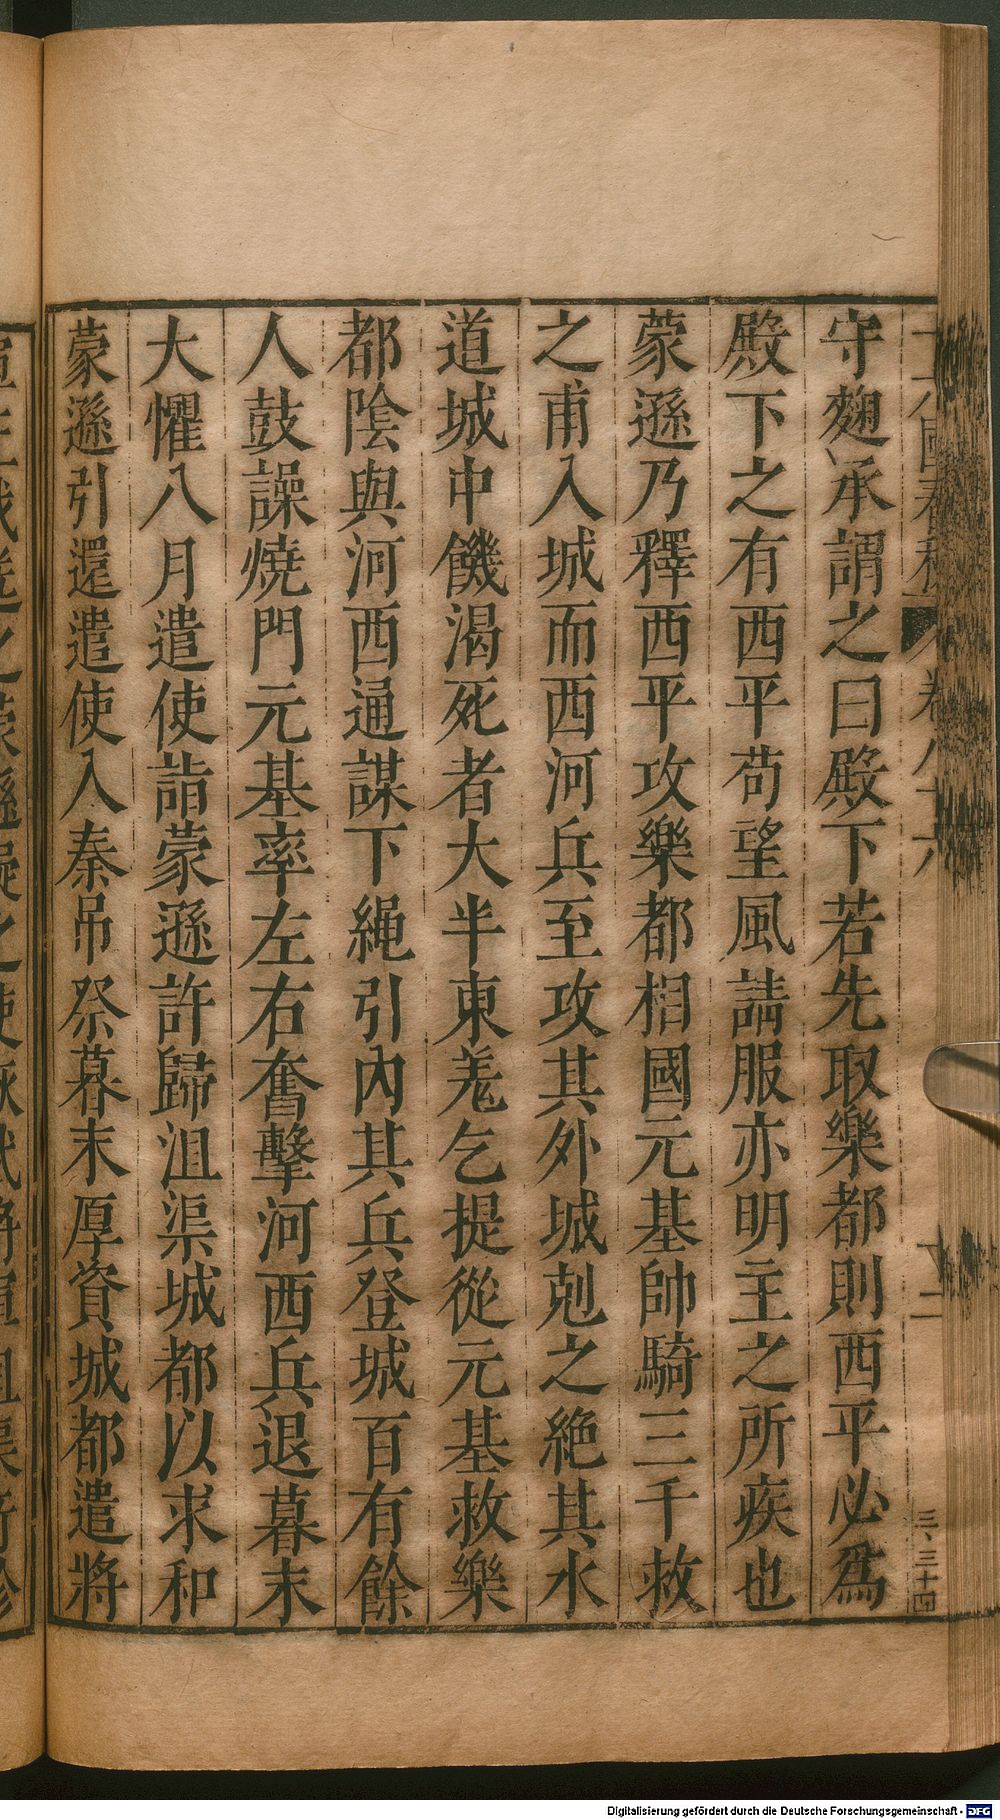 守麴承謂之曰殿下若先取樂都則西平必爲
殿下之有西平苟望風請服亦明主之所疾也
蒙遜乃釋西平攻樂都相國元基帥騎三千救
之甫入城而西河兵至攻其外城剋之絶其水
道城中饑渴死者大半東羌乞提從元基救樂
都陰與河西通謀下繩引內其兵登城百有餘
人鼓譟燒門元基率左右奮擊河西兵退暮末
大懼八月遣使詣蒙遜許歸沮渠城都以求和
蒙遜引還遣使入秦吊祭暮末厚資城都遣將
卷八十六
二
三、三十四
Digitalisierung gefördert durch die Deutsche Forschungsgemeinschaft - DFG